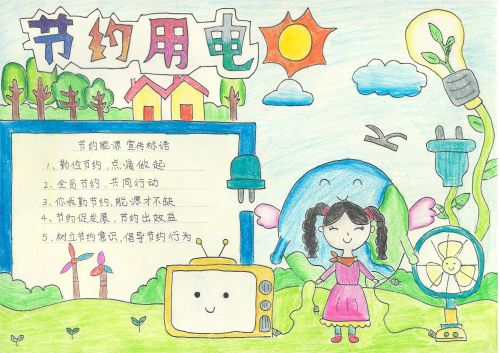 节约用电
节约能源 宣传标语
1、勤俭节约,点滴做起
2、全员节约,共同行动
3、你我勤节约,能源才不缺
4、节约促发展,节约出效益
5、树立节约意识,倡导节约行为